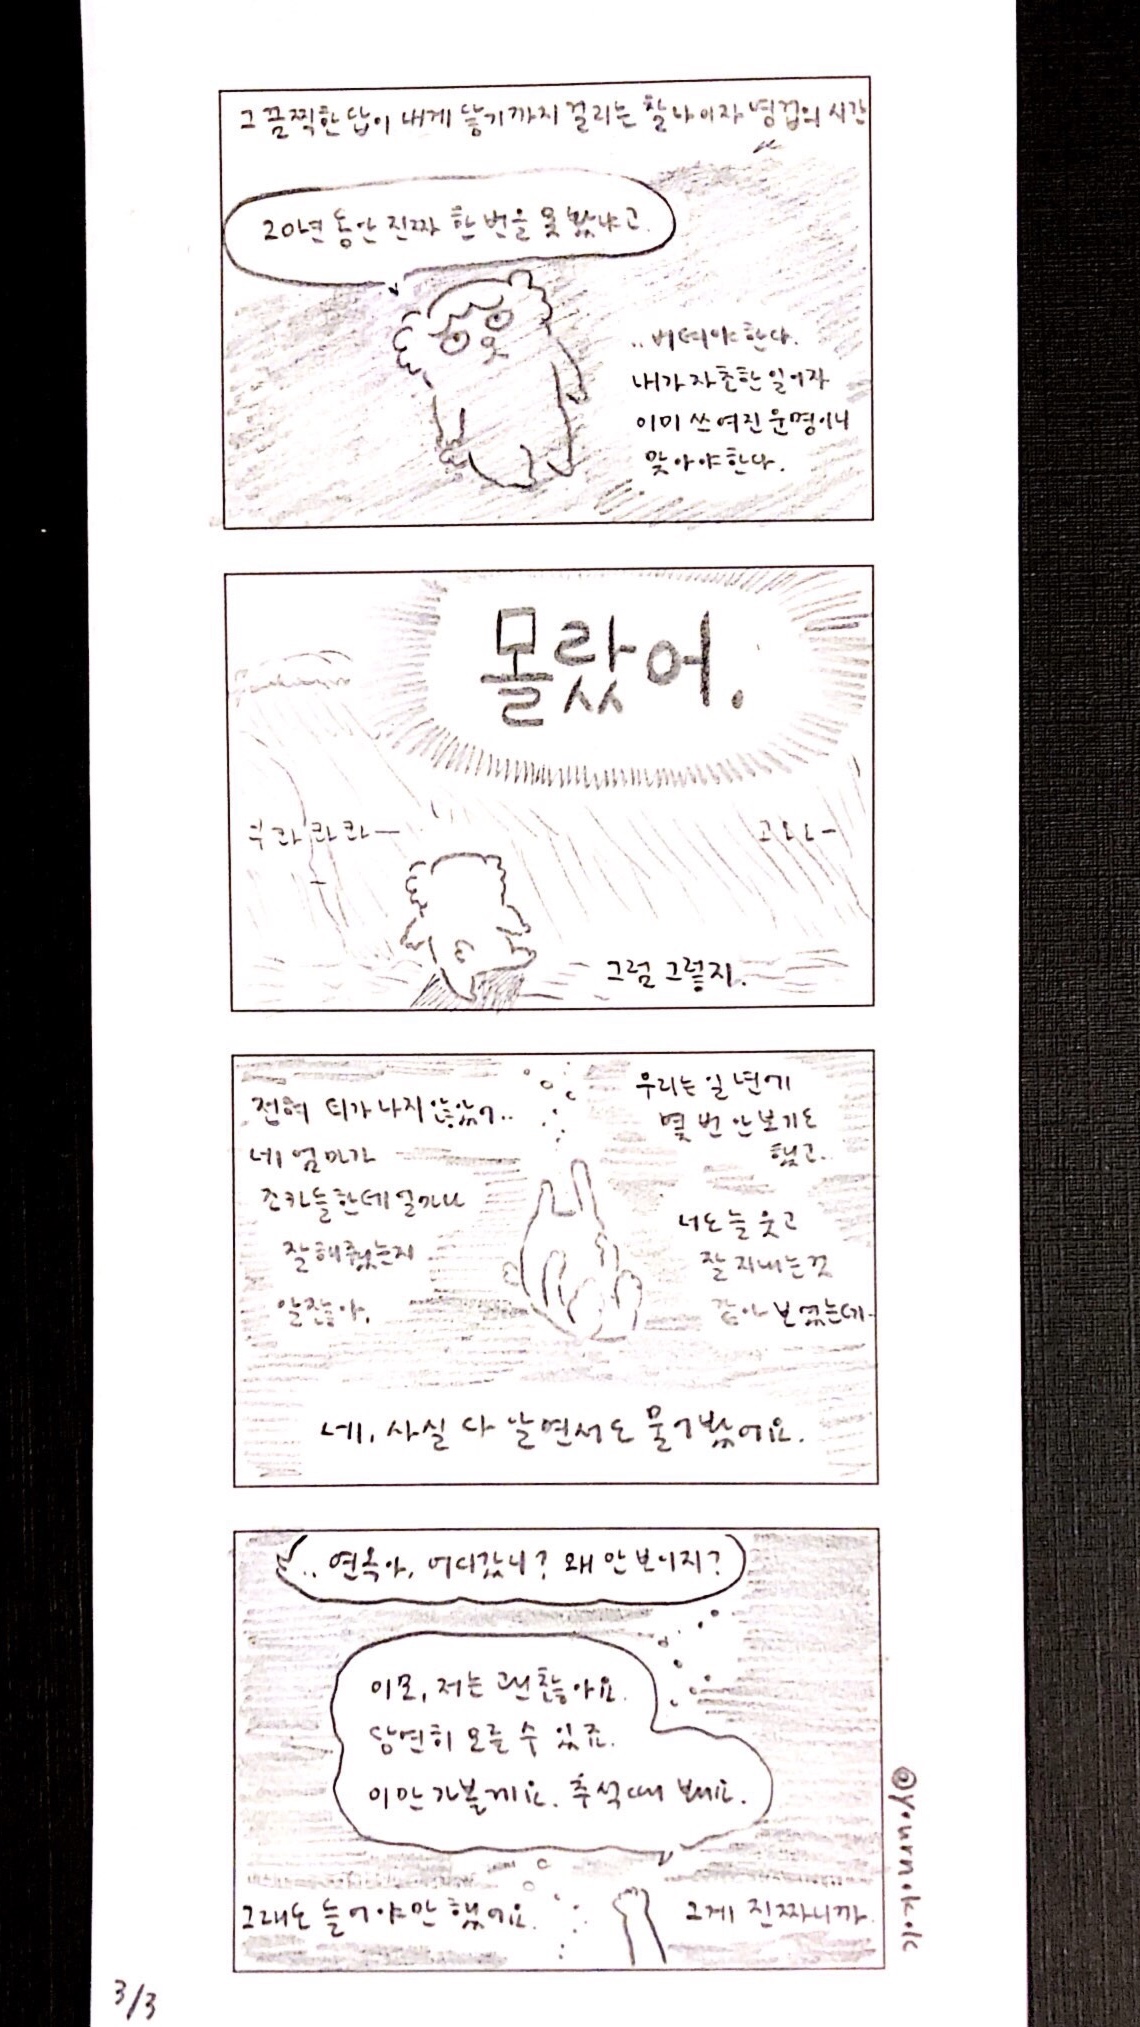 그 끔찍한 답이 내게 닿기까지 걸리는 찰나이자 영겁의 시간
20년 동안 진짜 한 번을 못 봤냐고.
..버텨야 한다.
내가 자초한 일이자
이미 쓰여진 운명이니
맞아야한다.
몰랐어.
콰콰콰—
고오오-
그럼 그렇지.
전혀 티가 나지 않았어..
네 엄마가
조카들한테 얼마나
잘해줬는지
알잖아.
우리는 일 년에
몇 번 안 보기도
했고.
너도 늘 웃고
잘 지내는 것
같아 보였는데-
네, 사실 다 알면서도 물어봤어요.
.. 연옥아, 어디갔니? 왜 안 보이지?
이모, 저는 괜찮아요.
당연히 모를 수 있죠.
이만 가볼게요. 추석 때 봬요.
그래도 들어야만 했어요.
그게 진짜니까.
@yournokok
3/3